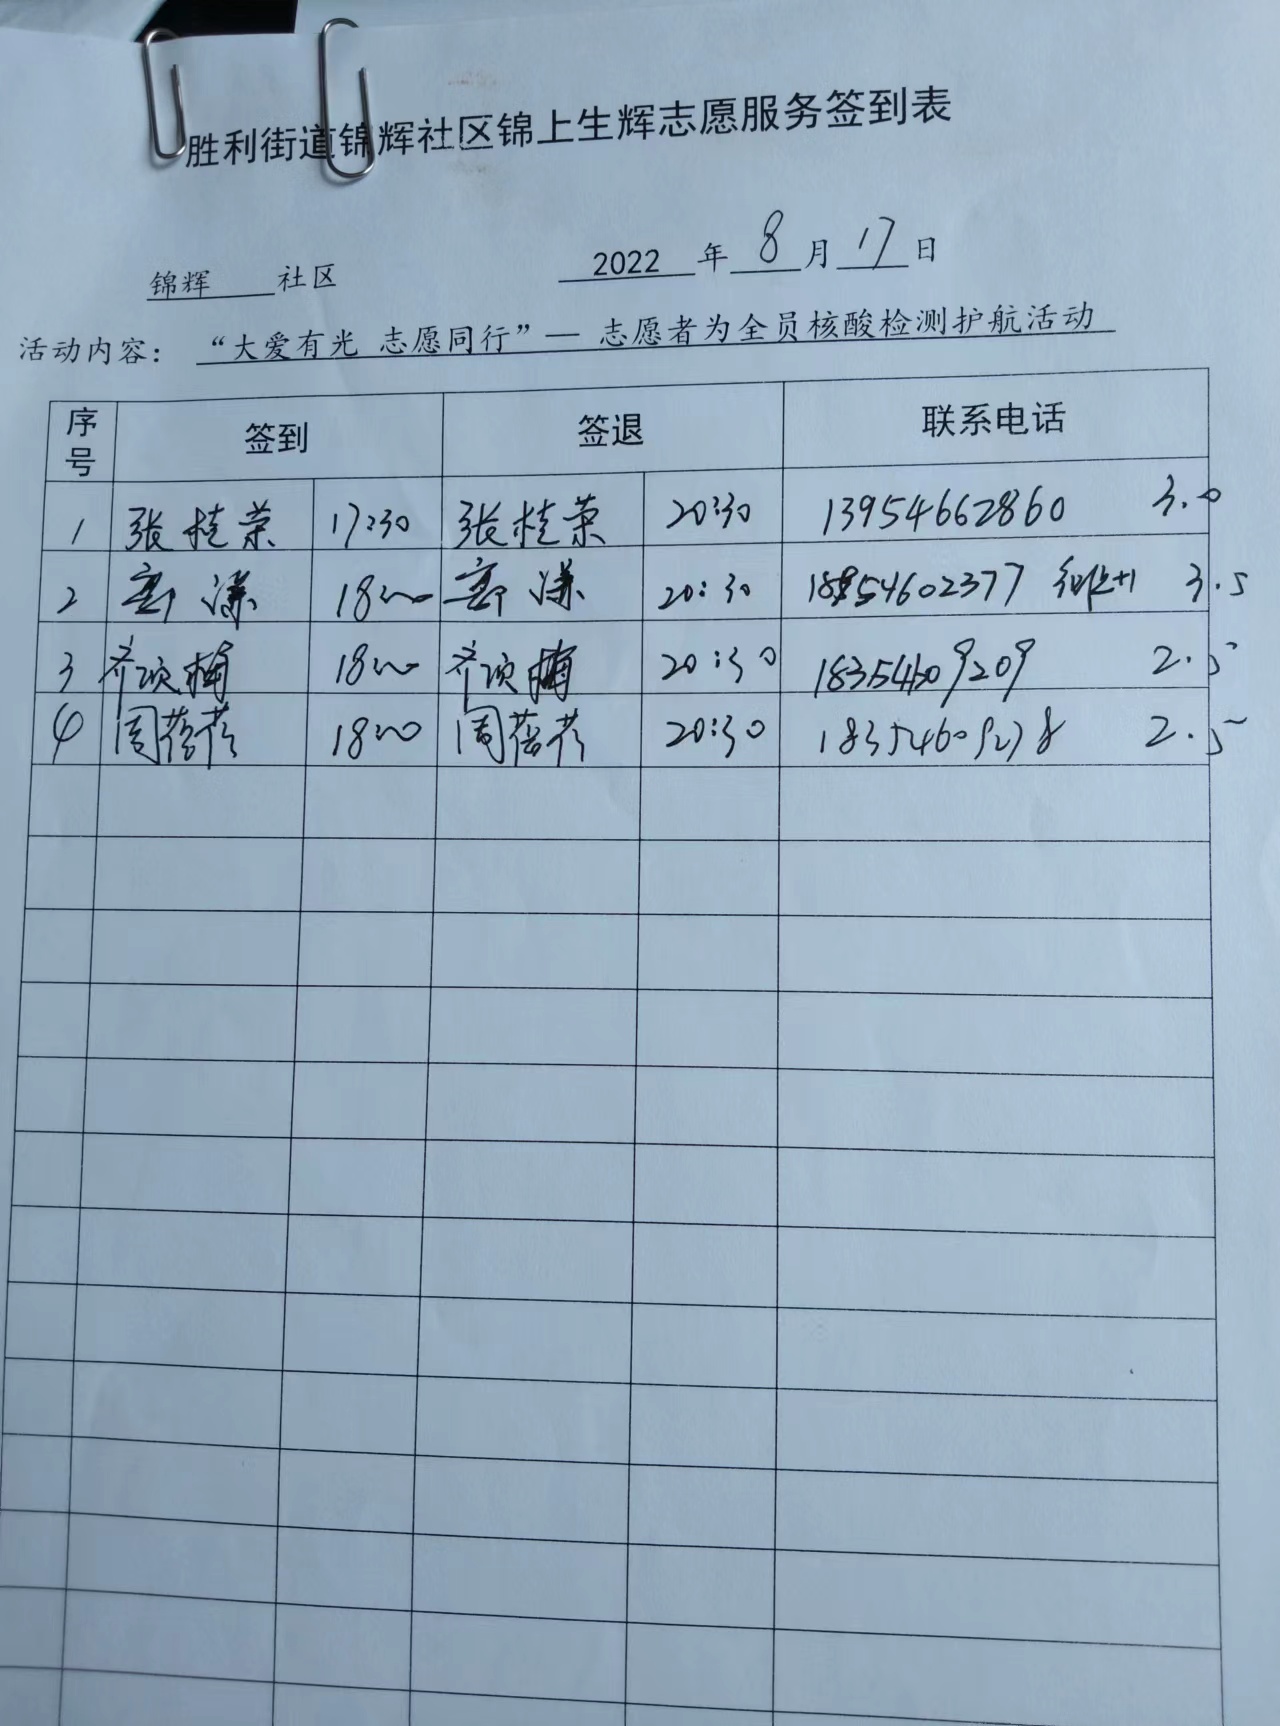 胜利街道锦辉社区锦上生辉志愿服务签到表
锦辉 社区 2022 年 8 月 17 日
活动内容： “大爱有光 志愿同行”— 志愿者为全员核酸检测护航活动
序号 签到 签退 联系电话
1 张桂荣 17:30 张桂荣 20:30 13954662860 3.0
2 18:00 20:30 18854602377 3.5
3 齐 梅 18:00 齐 梅 20:30 18354609209 2.5
4 周蓓蓓 18:00 周蓓蓓 20:30 2.5